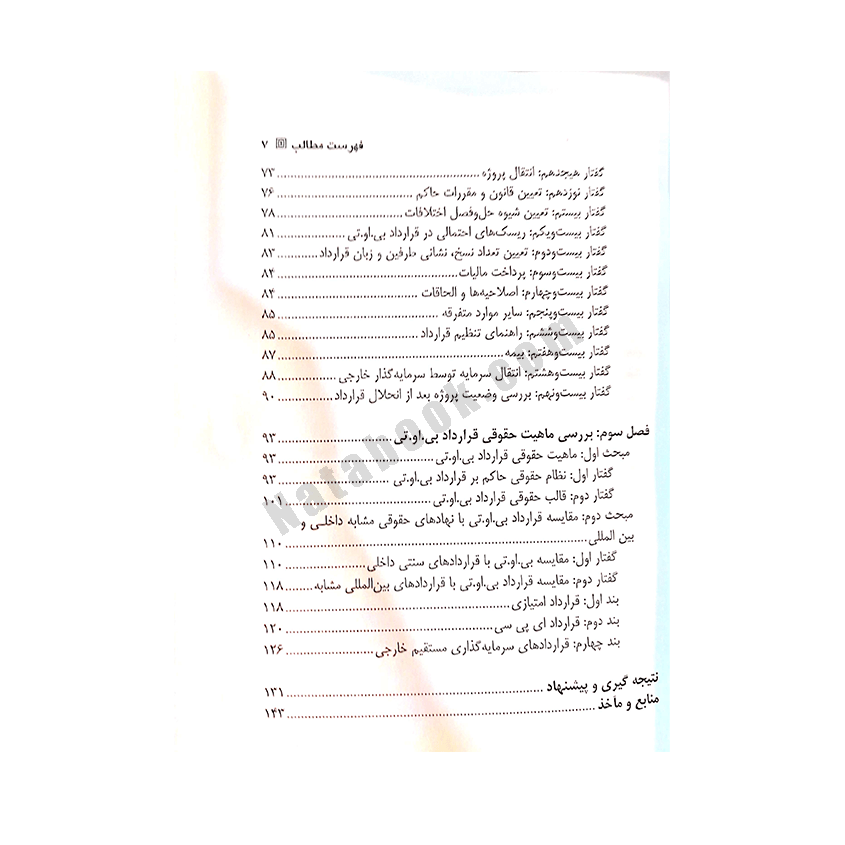 فهرست مطالب ۷
گفتار هیجدهم: انتقال پروژه ........ ۷۳
گفتار نوزدهم: تعیین قانون و مقررات حاکم ........ ۷۶
گفتار بیستم: تعیین شیوه حل‌وفصل اختلافات ........ ۷۸
گفتار بیست‌ویکم: ریسک‌های احتمالی در قرارداد بی.او.تی ........ ۸۱
گفتار بیست‌ودوم: تعیین تعداد نسخ، نشانی طرفین و زبان قرارداد ........ ۸۳
گفتار بیست‌وسوم: پرداخت مالیات ........ ۸۴
گفتار بیست‌وچهارم: اصلاحیه‌ها و الحاقات ........ ۸۴
گفتار بیست‌وپنجم: سایر موارد متفرقه ........ ۸۵
گفتار بیست‌وششم: راهنمای تنظیم قرارداد ........ ۸۵
گفتار بیست‌وهفتم: بیمه ........ ۸۷
گفتار بیست‌وهشتم: انتقال سرمایه توسط سرمایه‌گذار خارجی ........ ۸۸
گفتار بیست‌ونهم: بررسی وضعیت پروژه بعد از انحلال قرارداد ........ ۹۰
فصل سوم: بررسی ماهیت حقوقی قرارداد بی.او.تی ........ ۹۳
مبحث اول: ماهیت حقوقی قرارداد بی.او.تی ........ ۹۳
گفتار اول: نظام حقوقی حاکم بر قرارداد بی.او.تی ........ ۹۳
گفتار دوم: قالب حقوقی قرارداد بی.او.تی ........ ۱۰۱
مبحث دوم: مقایسه قرارداد بی.او.تی با نهادهای حقوقی مشابه داخلی و
بین المللی ........ ۱۱۰
گفتار اول: مقایسه بی.او.تی با قراردادهای سنتی داخلی ........ ۱۱۰
گفتار دوم: مقایسه قرارداد بی.او.تی با قراردادهای بین‌المللی مشابه ........ ۱۱۸
بند اول: قرارداد امتیازی ........ ۱۱۸
بند دوم: قرارداد ای پی سی ........ ۱۲۰
بند چهارم: قراردادهای سرمایه‌گذاری مستقیم خارجی ........ ۱۲۶
نتیجه گیری و پیشنهاد ........ ۱۳۱
منابع و مآخذ ........ ۱۴۳
Natabook.com